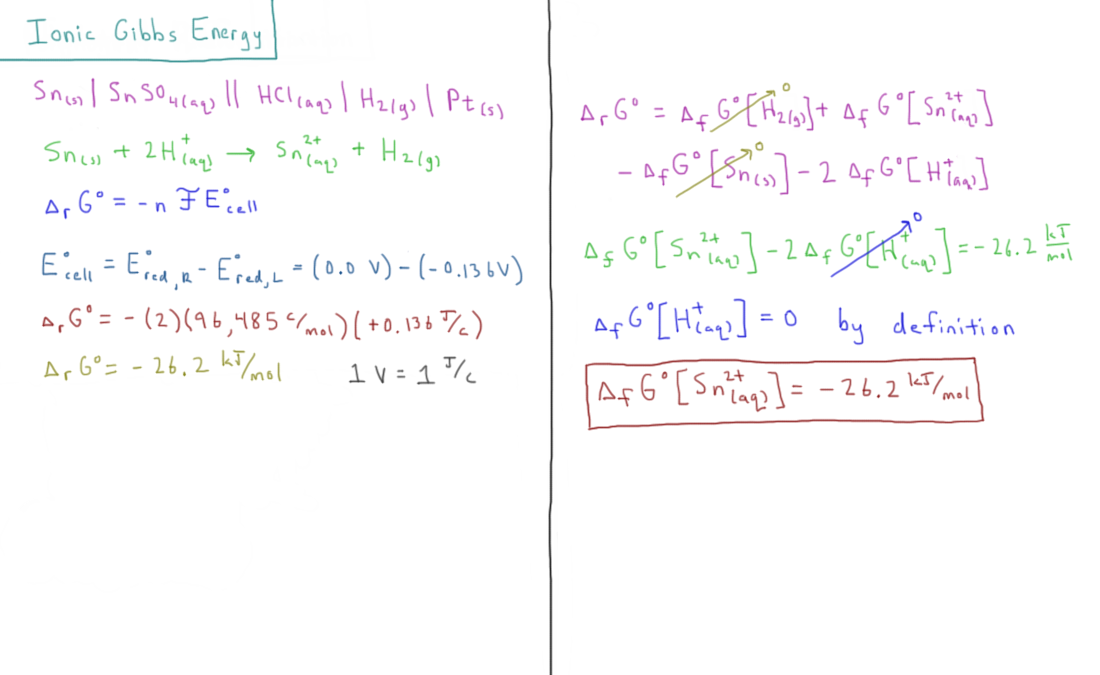 Ionic Gibbs Energy
Sn(s) | SnSO₄(aq) || HCl(aq) | H₂(g) | Pt(s)
Sn(s) + 2H⁺(aq) → Sn²⁺(aq) + H₂(g)
ΔᵣG° = -n ℱE°cell
E°cell = E°red,R - E°red,L = (0.0 V) - (-0.136V)
ΔᵣG° = - (2)(96,485 C/mol)(+0.136 J/C)
ΔᵣG° = - 26.2 kJ/mol 1 V = 1 J/C
ΔᵣG° = ΔfG°[H₂(g)]→0 + ΔfG°[Sn²⁺(aq)]
- ΔfG°[Sn(s)]→0 - 2 ΔfG°[H⁺(aq)]
ΔfG°[Sn²⁺(aq)] - 2 ΔfG°[H⁺(aq)]→0 = - 26.2 kJ/mol
ΔfG°[H⁺(aq)] = 0 by definition
ΔfG°[Sn²⁺(aq)] = - 26.2 kJ/mol